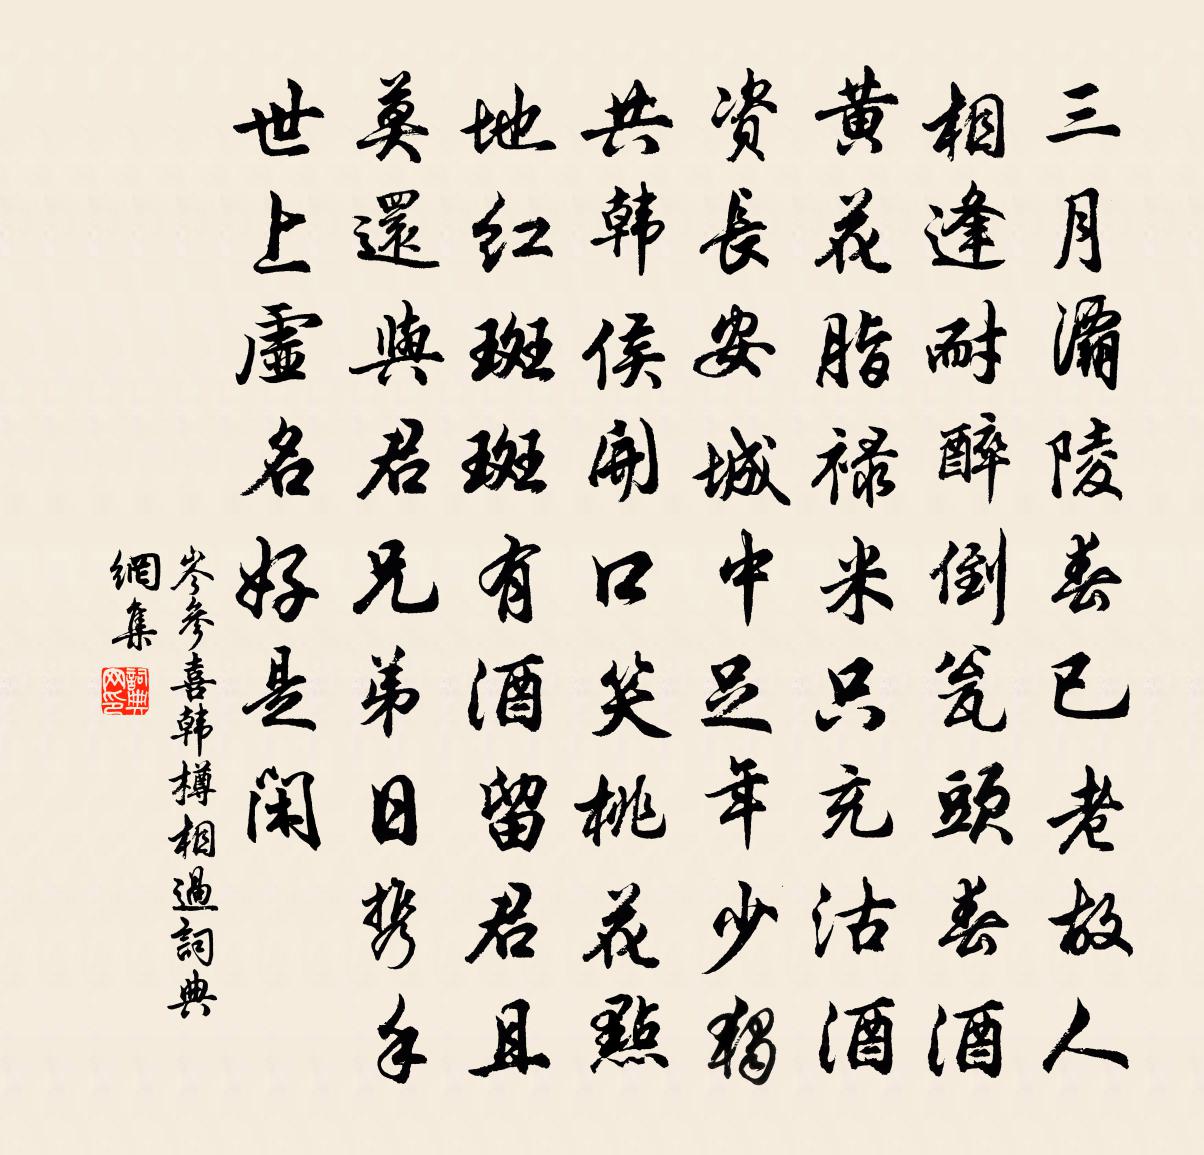 三月灞陵春已老故人
相逢耐醉倒瓮頭春酒
黄花脂禄米只充沽酒
资長安城中足年少獨
共韩侯開口笑桃花點
地红斑斑有酒留君且
莫還與君兄弟日携手
世上虛名好是闲
岑參喜韩樽相過詞典
網集
詞典
网印